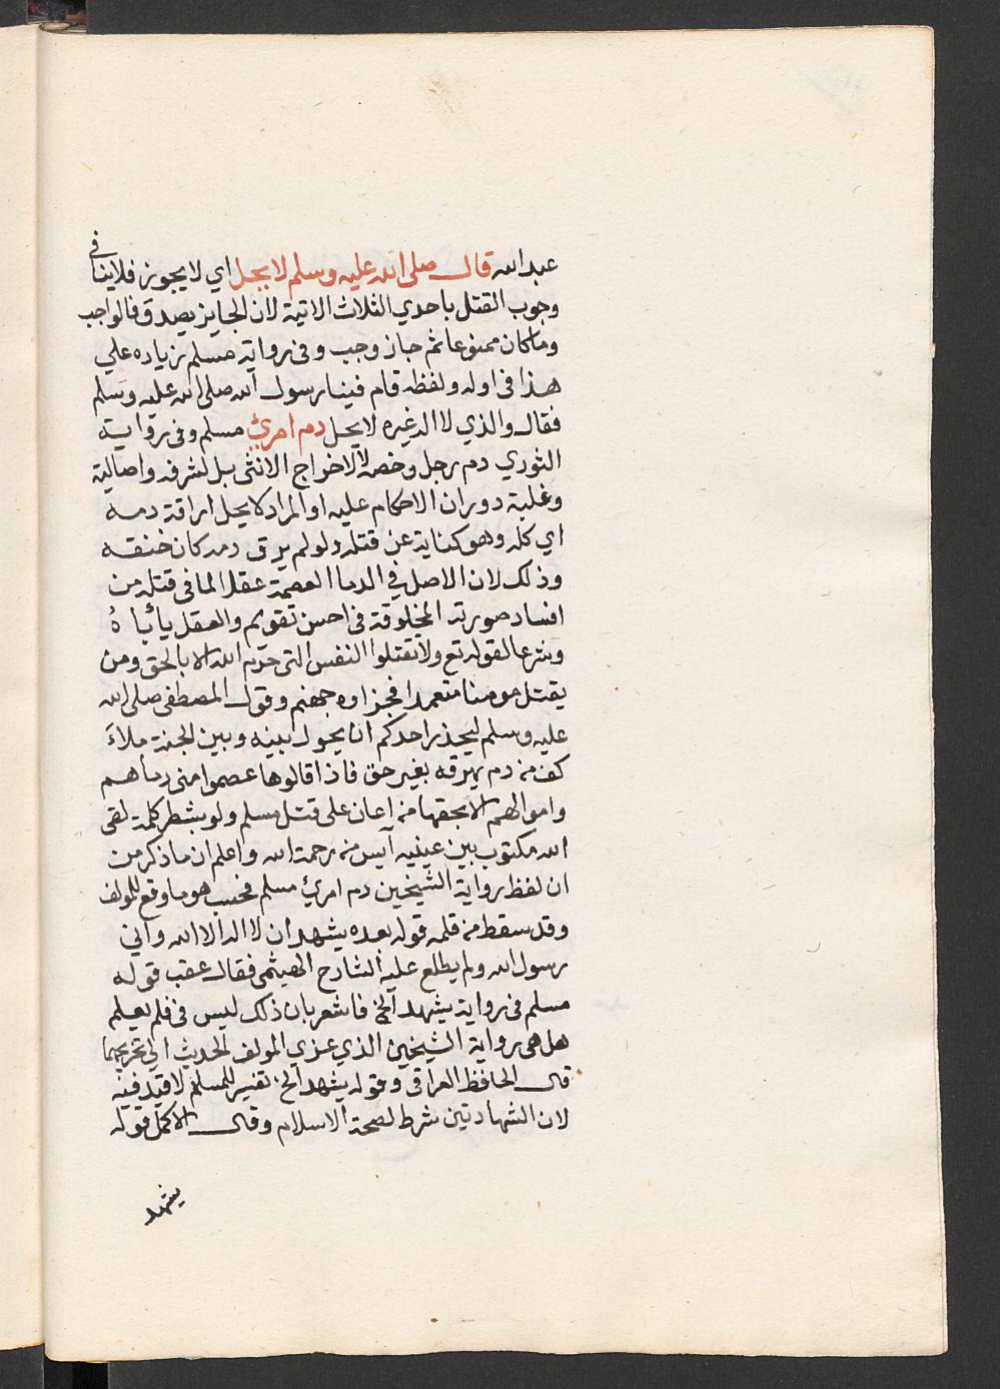 عبد الله قال صلى الله عليه وسلم لا يحل اي لا يجوز فلا ينافي
وجوب القتل باحدي الثلاث الاتية لان الجايز يصدق فالواجب
وما كان ممنوعا ثم جاز وجب وفي رواية مسلم زياده علي
هذا في اوله ولفظه قام فينا رسول الله صلى الله عليه وسلم
فقال والذي لا اله غيره لا يحل دم امرئ مسلم وفي رواية
الثوري دم رجل وخصه لا لاخراج الانثى بل لشرفه واصاليته
وغلبة دوران الاحكام عليه او المراد لا يحل اراقة دمه
اي كله وهو كناية عن قتله ولو لم يرق دمه كان خنقه
وذلك لان الاصل في الدما العصمة عقلا لما في قتله من
افساد صورته المخلوقة في احسن تقويم والعقل يأباهُ
وشرعا لقوله تع ولا تقتلوا النفس التي حرم الله الا بالحق ومن
يقتل مومنا متعمدا فجزاوه جهنم وقول المصطفى صلى الله
عليه وسلم ليحذر احدكم ان يحول بينه وبين الجنة ملاء
كف من دم يهرقه بغير حق فاذا قالوها عصموا منى دماهم
واموالهم الا بحقها من اعان على قتل مسلم ولو بشطر كلمة لقى
الله مكتوب بين عينيه آيس من رحمة الله واعلم ان ما ذكر من
ان لفظ رواية الشيخين دم امرئ مسلم فحسب هو ما وقع للمولف
وقد سقط من قلمه قوله بعده يشهد ان لا اله الا الله واني
رسول الله ولم يطلع عليه الشارح الهيثمى فقال عقب قوله
مسلم في رواية يشهد الخ فاشعر بان ذلك ليس في فلم يعلم
هل هي رواية الشيخين الذي عزي المولف الحديث الي تخريجهما
قال الحافظ العراقي وقوله يشهد الخ تفسير للمسلم لا قيد فيه
لان الشهادتين شرط لصحة الاسلام وقال الاكمل قوله
يشهد